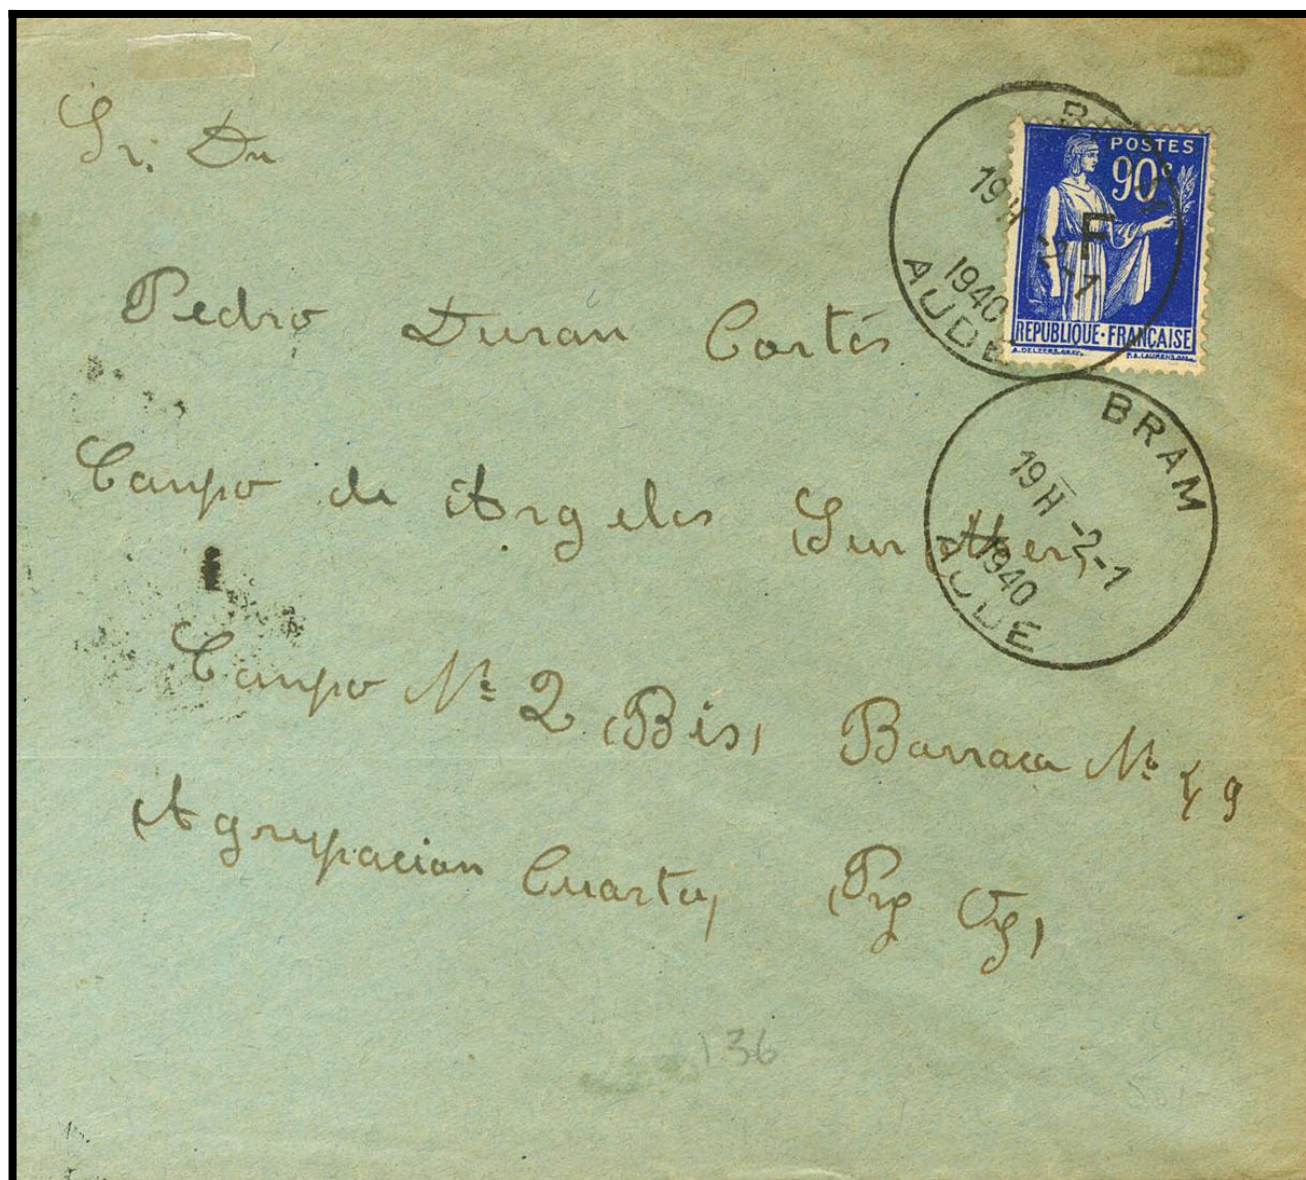 Sr. Dn
Pedro Duran Cortés
Campo de Argeles Sur Mer,
Campo Nº 2 (Bis) Barraca Nº 49
Agrupacion Cuarta,
136
POSTES
90c
F
REPUBLIQUE·FRANÇAISE
BRAM
19H -2-1
1940
AUDE
BRAM
19H -2-1
1940
AUDE